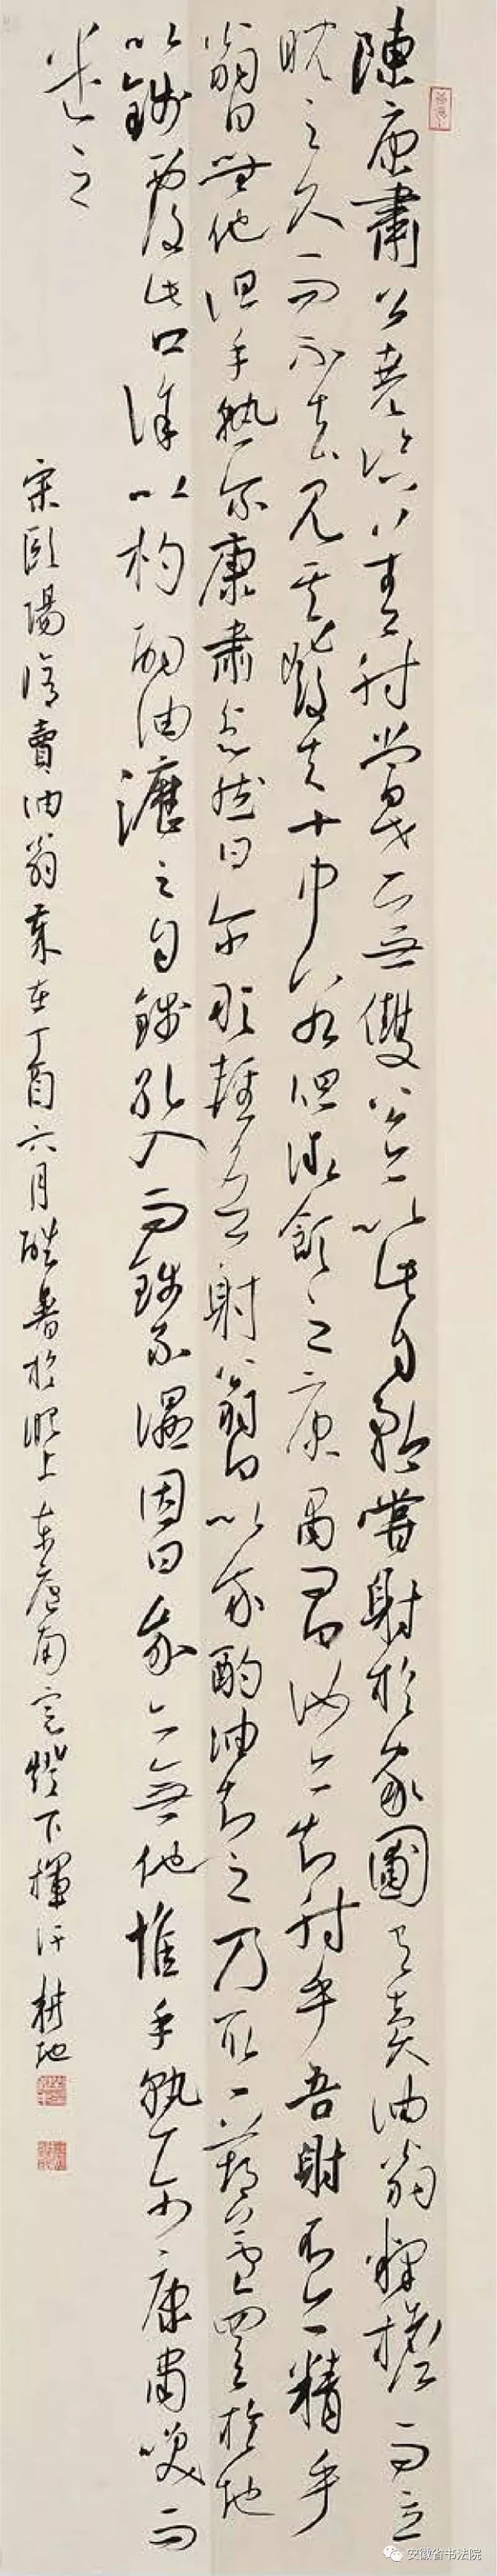 陳康肅公堯咨善射當世無雙公亦以此自矜嘗射於家圃有賣油翁釋擔而立
睨之久而不去見其發矢十中八九但微頷之康肅問曰汝亦知射乎吾射不亦精乎
翁曰無他但手熟尔康肅忿然曰尔敢輕吾射翁曰以我酌油知之乃取一葫蘆置於地
以錢覆其口徐以杓酌油瀝之自錢孔入而錢不濕因曰我亦無他惟手熟尔康肅笑而
遣之
宋歐陽修賣油翁歲在丁酉六月酷暑於淝上東南窗燈下揮汗耕地
安徽省书法院